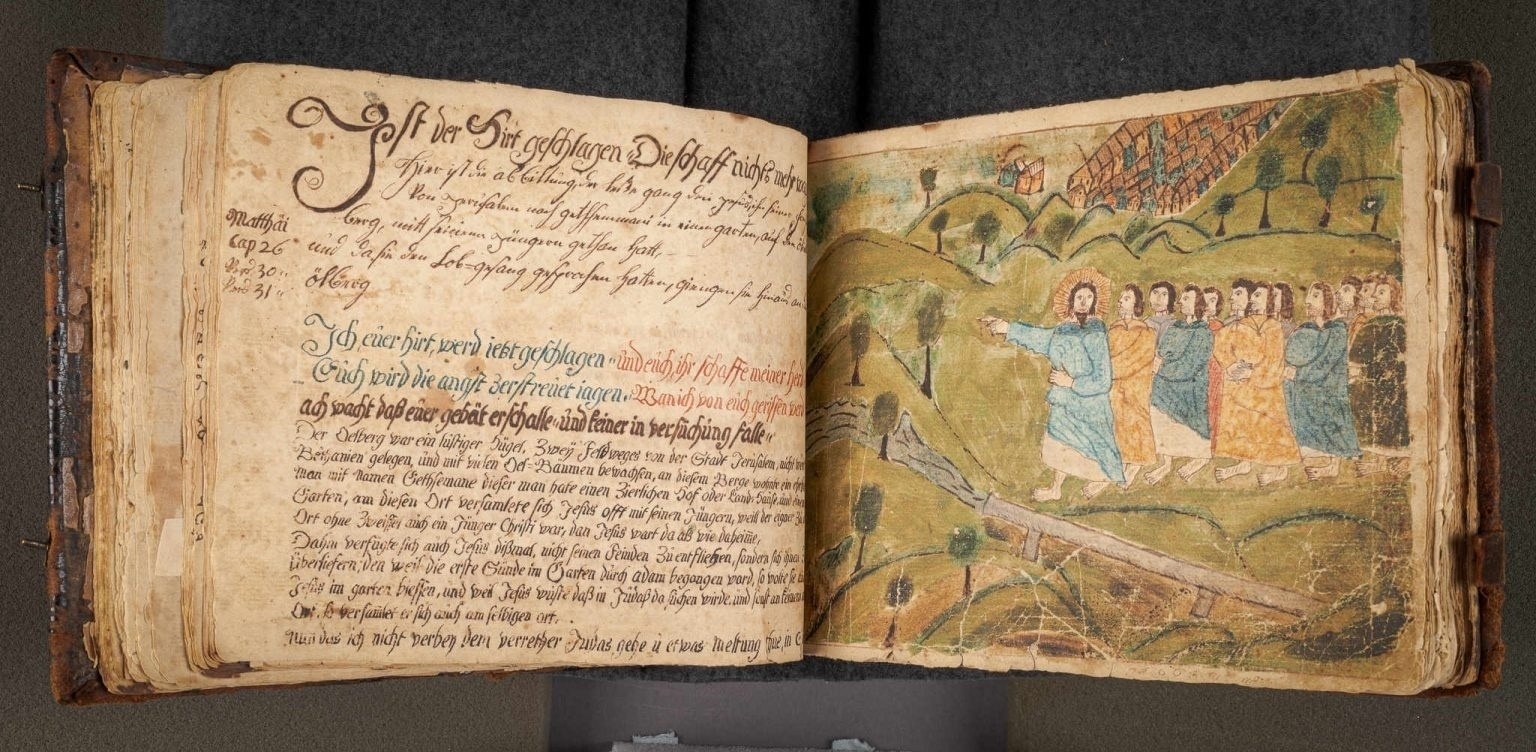 Ist der Hirt geschlagen Die schaff nichts mehr
Hier ist die abbildung der letze gang den
von Jerusalem nach gethsemani in einen garten, auf den
Matthäi
berg, mitt seinem Jüngern gethan hatt,
Cap 26
und da sie den Lob-gesang gesprochen hatten, giengen sie hinaus an
Vers 30
Vers 31
ölberg
Ich, eüer hirt, werd ietzt geschlagen und eüch, ihr schaffe meiner herd
Eüch wird die angst zerstreüet iagen, Wan ich von eüch gerissen
ach wacht daß eüer gebät erschalle und keiner in versüchüng falle
Der Oelberg war ein lüstiger Hügel, Zweÿ Feldweges von der Stadt Jerüsalem, nicht
Bethanien gelegen, ünd mit vielen Oel-Baümen bewachsen, an diesem Berge wohnte ein
man mit Namen Gethsemane dieser man hate einen Zierlichen Hof oder Land-Hauße, und
Garten, an diesen Ort versamlete sich Jesüs offt mit seinen Jüngern, weill der eigner
Ort ohne Zweiffel auch ein Jünger Christi war, dan Jesüs wart da als wie daheime,
Dahin verfügte sich aüch Jesüs dißmal, nicht seinen Feinden Zü entfliehen, sondern sich ihnen
überliefern, den weil die erste Sünde im Garten dürch adam begangen word, so wolte sie
Jesüs im garten biessen, und weil Jesüs wüste daß in Jüdaß da süchen würde, und sonst an keinem
Ort, so versamlet er sich aüch am selbigen ort.
Nun das ich nicht verbeÿ dem verrether Judas gehe ü etwas meltung thue, in